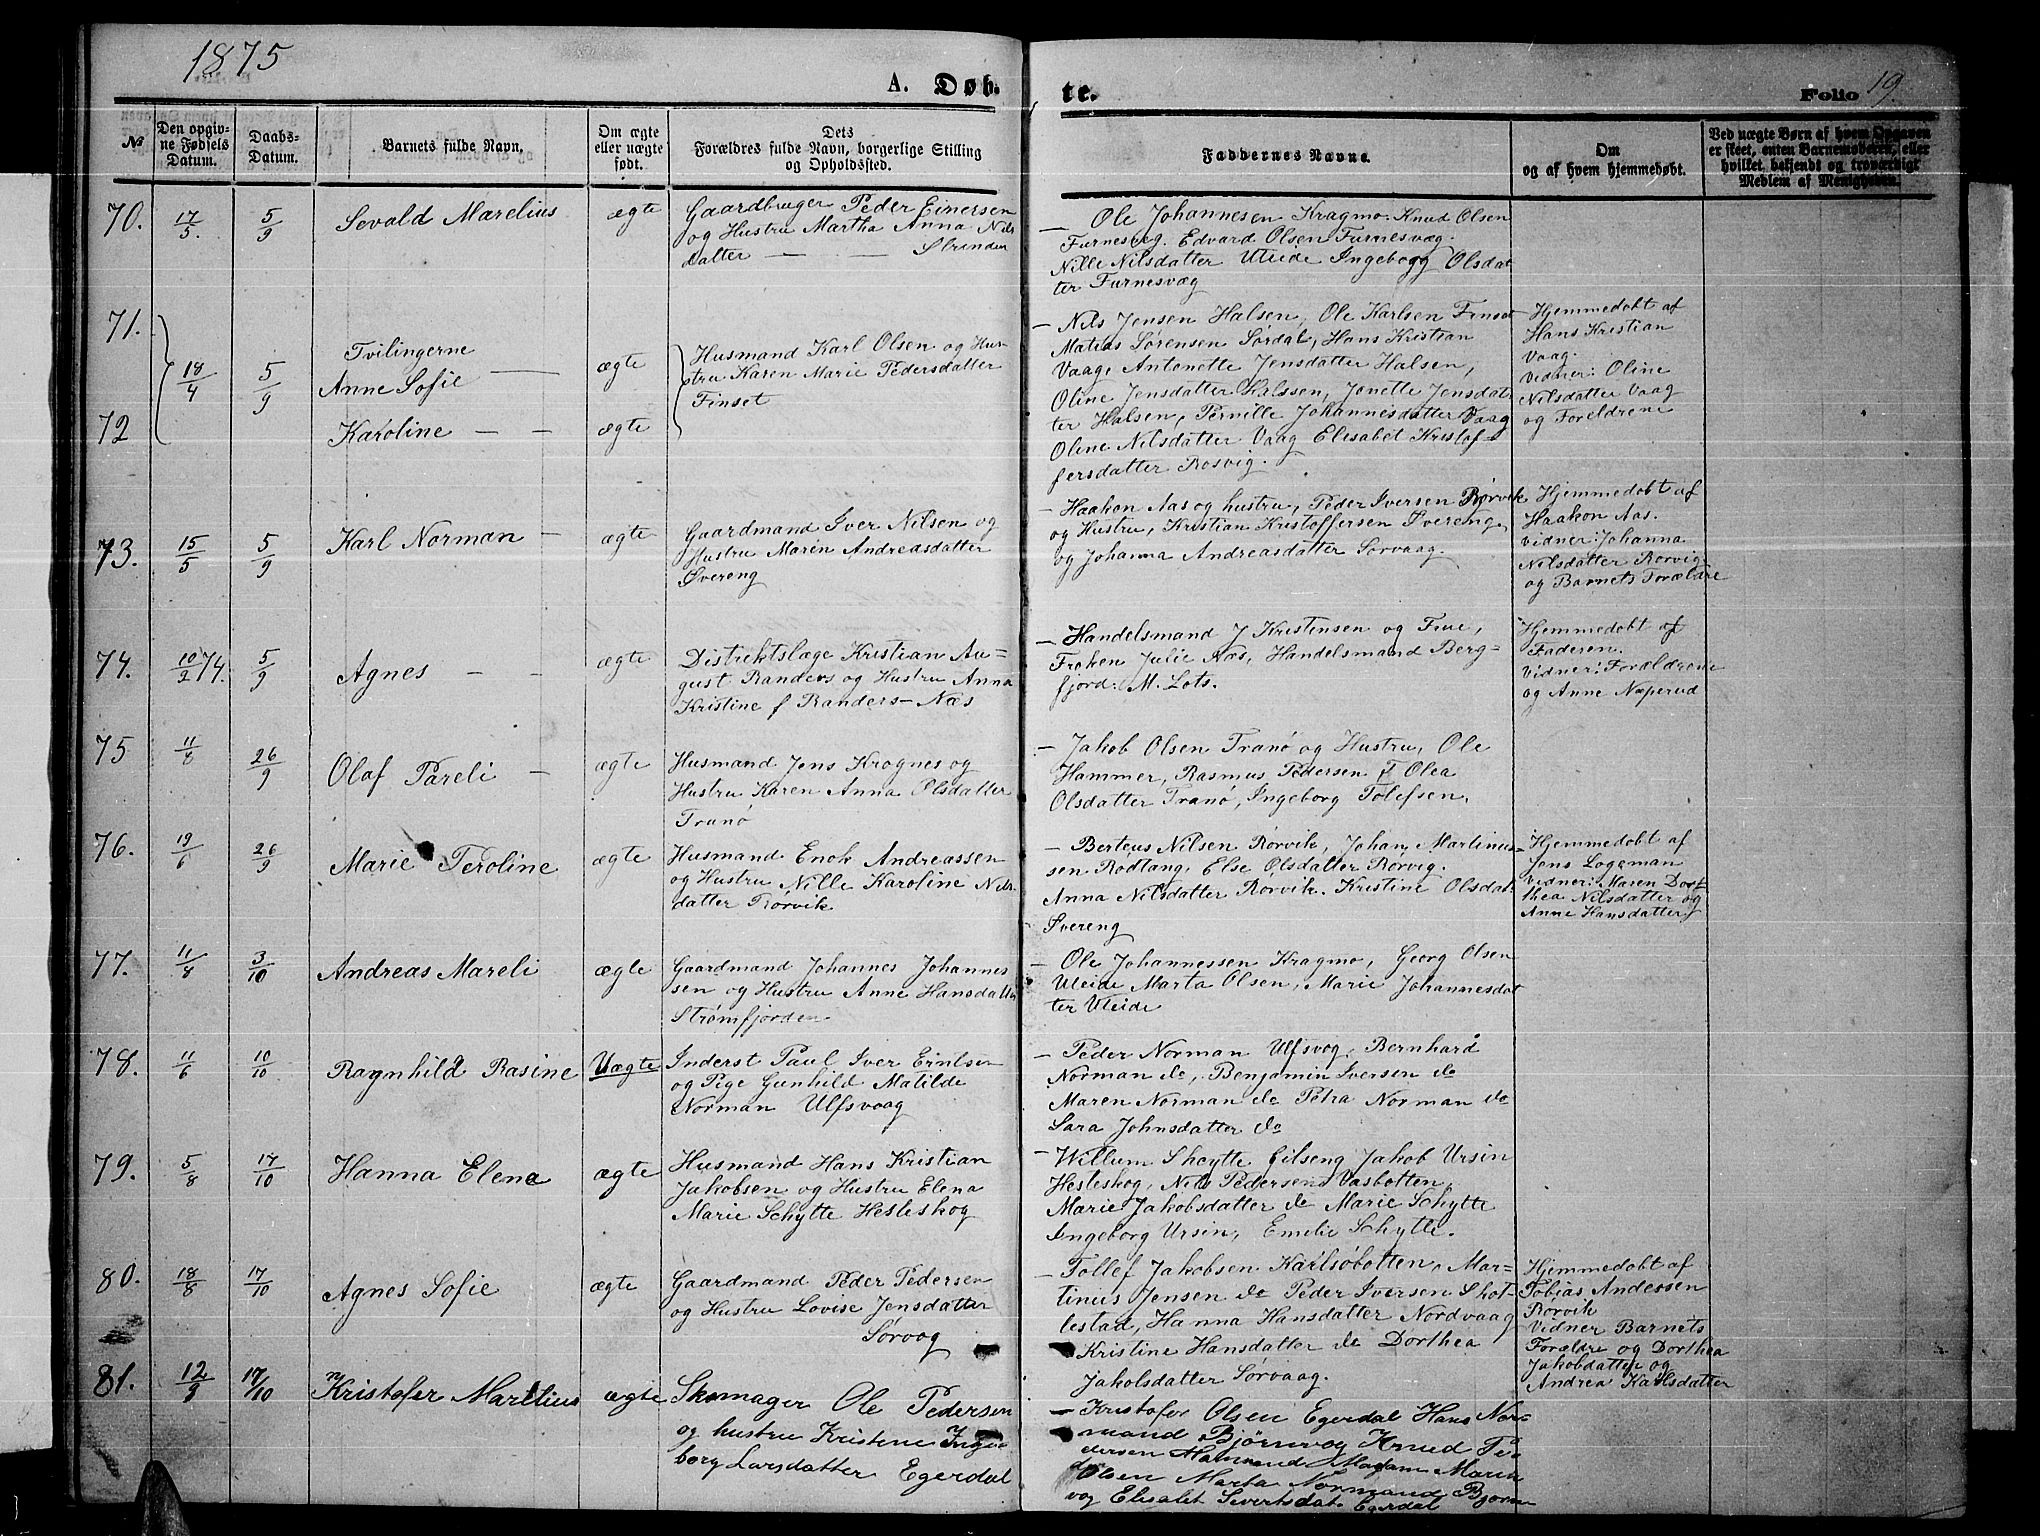 1875
A. Døb-
te.
Folio 19.
№
Den opgiv-
ne Fødsels
Datum.
Daabs-
Datum.
Barnets fulde Navn.
Om ægte
eller uægte
født.
Dets
Forældres fulde Navn, borgerlige Stilling
og Opholdssted.
Faddernes Navne.
Om
og af hvem hjemmedøbt.
Ved uægte Børn af hvem Opgaven
er skeet, enten Barnemoderen, eller
hvilket bekjendt og troværdigt
Medlem af Menigheden.
70. 17/5. 5/9 Sevald Marelius ægte
Gaardbruger Peder Einersen
og Hustru Martha Anna Nils
datter — — Strinden
— Ole Johannesen Kragmo. Knud Olsen
Furnesveg. Edvard Olsen Furnesvæg.
Nille Nilsdatter Uleide Ingebogg Olsdat
ter Furnesvæg
71. Tvilingerne
18/4 5/9 Anne Sofie — ægte
72 Karoline — — ægte
Husmand Karl Olsen og Hus-
tru Karen Marie Pedersdatter
Finset
— Nils Jensen Halsen, Ole Karlsen Finset
Matias Sørensen Sørdal, Hans Kristian
Vaage Antonette Jensdatter Halsen,
Oline Jensdatter Halssen, Jonette Jensdat
ter Halsen, Pernille Johannesdatter Vaag
Oline Nilsdatter Vaag Elisabet Kristof-
fersdatter Rosvig.
Hjemmedobt af
Hans Kristian
Vaag.
Vidner: Oline
Nilsdatter Vaag
og Foreldrene
73. 15/5 5/9 Karl Norman — ægte
Gaardmand Iver Nilsen og
Hustru Maren Andreasdatter
Svereng
— Haakon Aas og hustru, Peder Iversen Rørvik
og Hustru, Kristian Kristoffersen Svereng,
og Johanna Andreasdatter Sørvaag.
Hjemmedobt af
Haakon Aas.
vidner: Johanna
Nilsdatter Rorvig
og Barnets Forældre
74. 10/2 74. 5/9 Agnes — — ægte
Distriktslæge Kristian Au-
gust Randers og Hustru Anna
Kristine f Randers—Næs
— Handelsmand J Kristinsen og Frue,
Frøken Julie Næs, Handelsmand Berg-
fjord. M. Lots.
Hjemmedobt af
Faderen.
Vidner: Forældrene
og Anne Næperud
75 11/8 26/9 Olaf Pareli — ægte
Husmand Jens Krognes og
Hustru Karen Anna Olsdatter
Tranø
— Jakob Olsen Tranø og Hustru, Ole
Hammer, Rasmus Pedersen T Olea
Olsdatter Tranø, Ingeborg Tolefsen.
76. 19/6 26/9 Marie Peroline ægte
Husmand Enok Andreassen
og Hustru Nille Karoline Nils
datter Rorvik.
— Berteus Nilsen Rørvik, Johan Martinus-
sen Rødtang. Else Olsdatter Rorvig.
Anna Nilsdatter Rørvik. Kristine Olsdat.
Svereng
Hjemmedobt af
Jens Logeman
Vidner: Maren Dor-
thea Nilsdatter og
Anne Hansdatter
77. 11/8 3/10 Andreas Mareli ægte
Gaardmand Johannes Johannes
sen og Hustru Anne Hansdatter
Strømfjorden
— Ole Johannessen Kragmo, Georg Olsen
Uleide Marta Olsen, Marie Johannesdat
ter Uleide
78. 11/6 10/10 Ragnhild Rasine Uægte
Inderst Paul Iver
og Pige Gunhild Matilde
Norman Ulfsvaag
— Peder Norman Ulfsvog, Bernhard
Norman do, Benjamin Iversen do
Maren Norman do Petra Norman do
Sara Johnsdatter do
79. 5/8 17/10 Hanna Elena ægte
Husmand Hans Kristian
Jakobsen og Hustru Elena
Marie Schytte Hesleskog
— Willum Scytte Eilseng Jakob Ursin
Hesleskog, Nils Pedersen Vasbotten,
Marie Jakobsdatter do Marie Schytte
Ingeborg Ursin, Emelie Schytte.
80. 18/8 17/10 Agnes Sofie ægte
Gaardmand Peder Pedersen
og Hustru Lovise Jensdatter
Sørvog
— Tollef Jakobsen Karlsøbotten, Mar-
tinus Jensen do Peder Iversen Skot-
lestad, Hanna Hansdatter Nordvaag
Kristine Hansdatter do Dorthea
Jakobsdatter Sørvaag.
Hjemmedobt af
Tobias Anderssen
Rorvik
Vidner Barnets
Forældre og Dorthea
Jakobdatter og
Andrea Karlsdatter
81. 12/9 17/10 Kristofer Marelius ægte
Skomager Ole Pedersen
og hustru Kristine Inge-
borg Larsdatter Egerdal
— Kristofer Olsen Egerdal Hans Nor-
mand Bjørnvog Knud Pe-
dersen Madam Maria
Olsen Marta Normand Bjørn-
vog Elisabet Sivertsdat. Egerdal